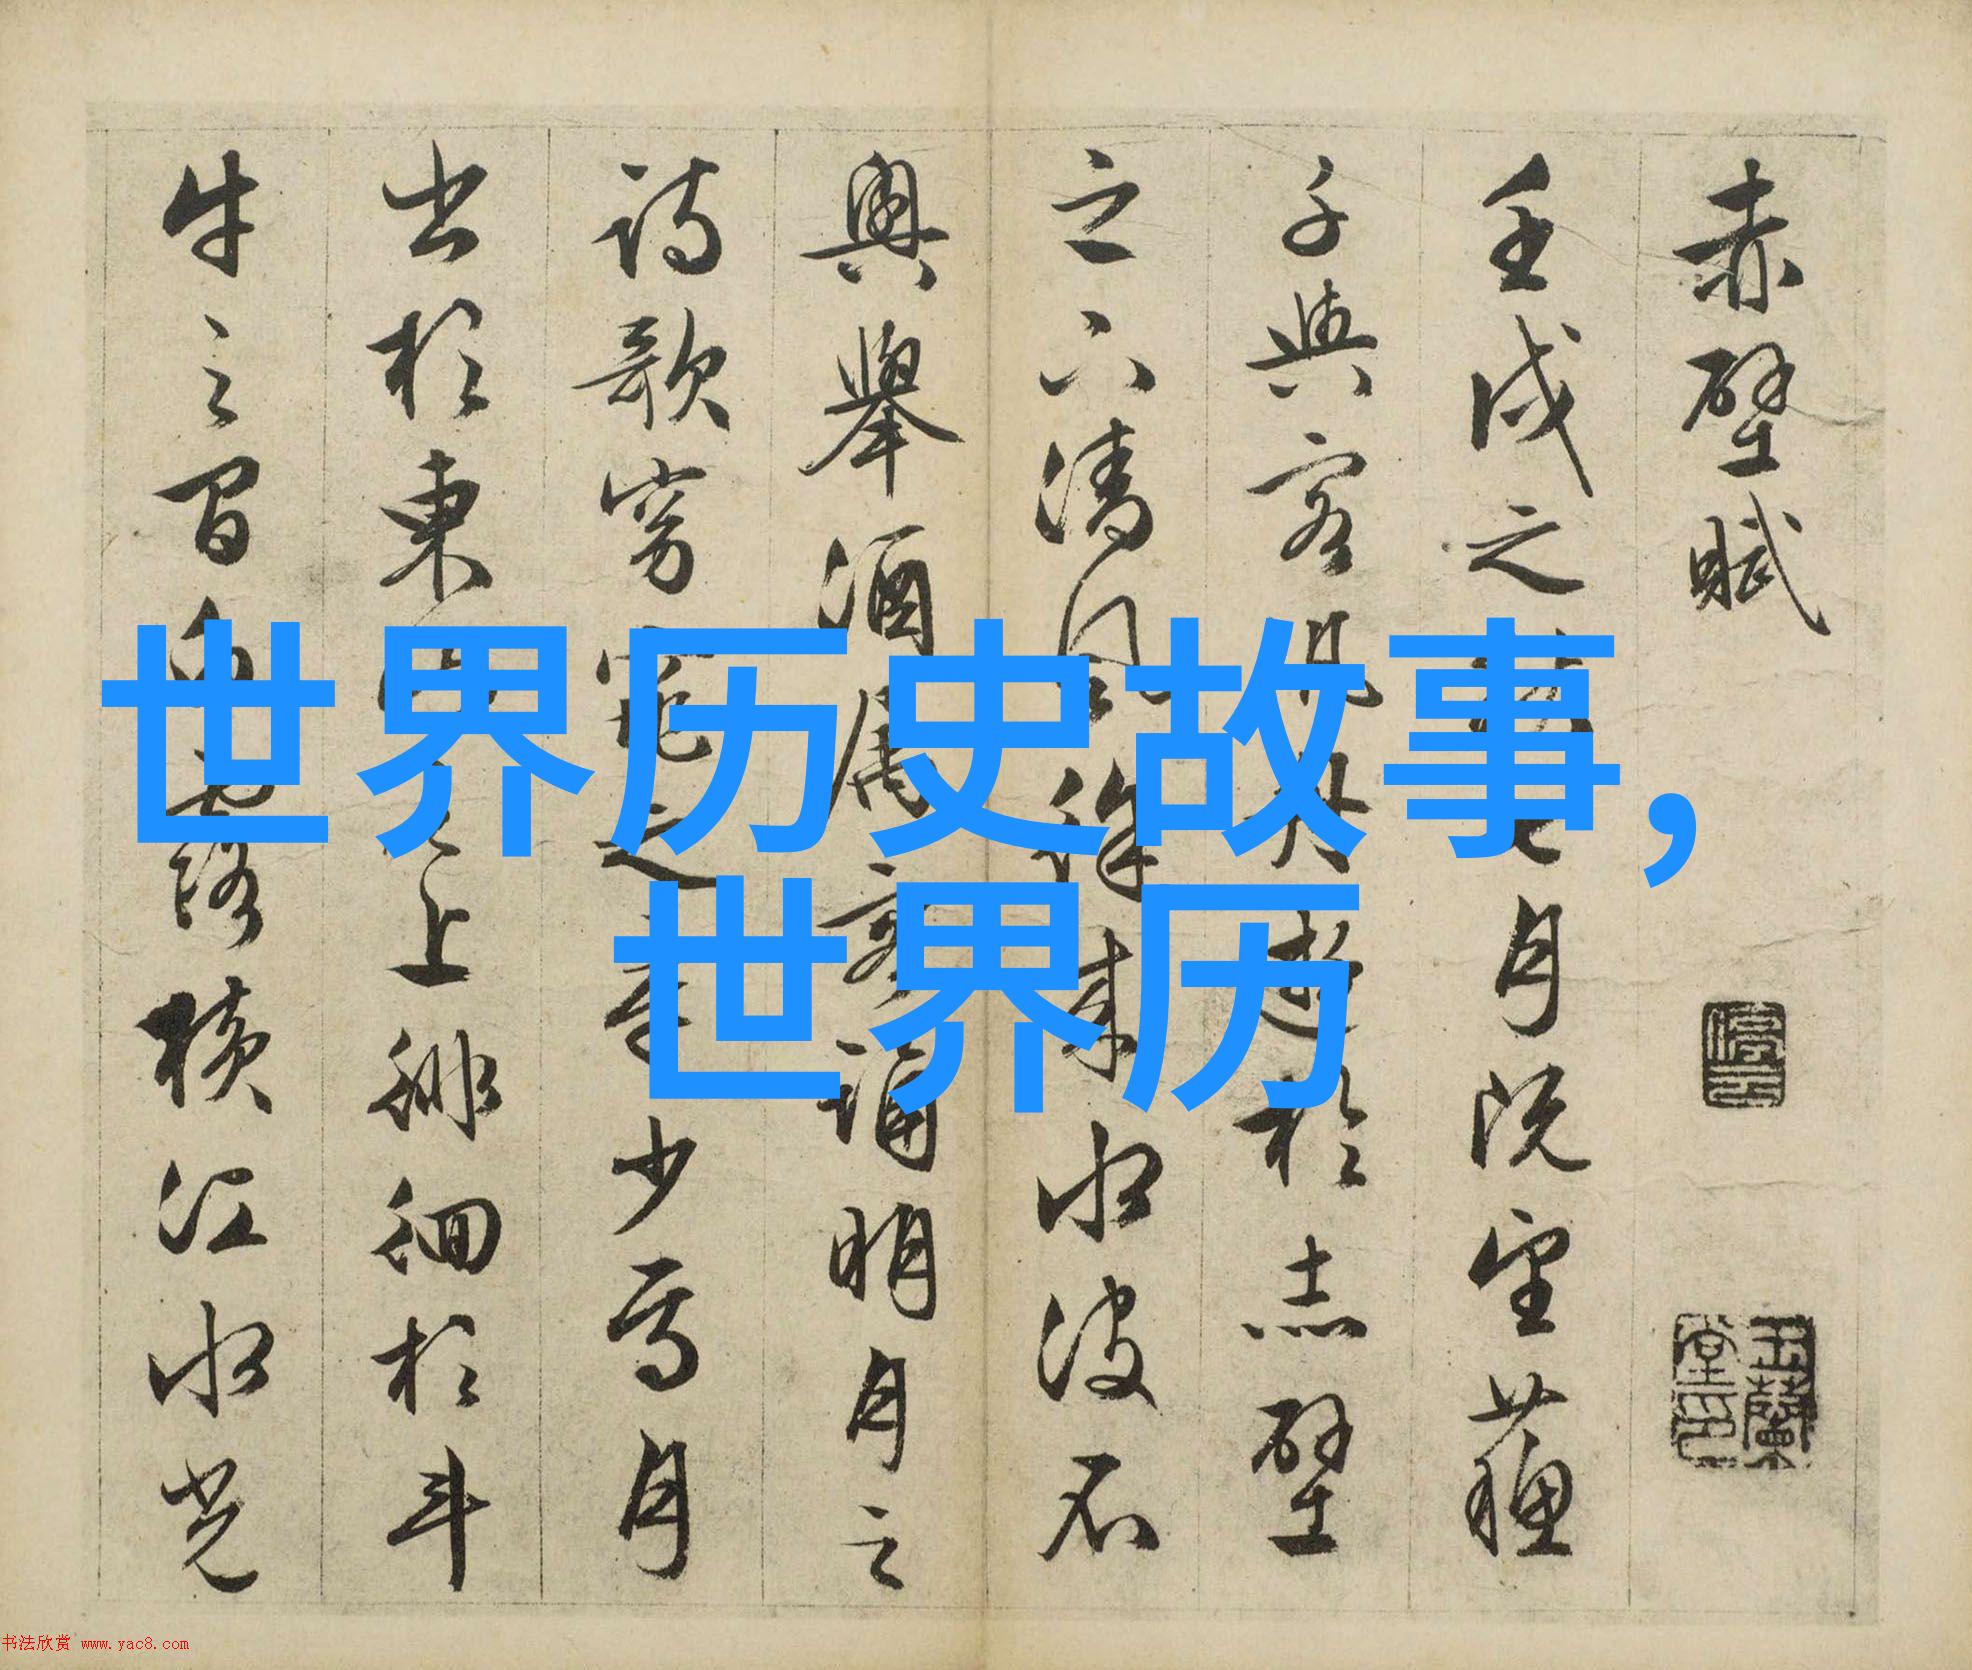 赤壁賦
壬戌之秋七月既望蘓
子與客泛舟遊於赤壁
之下清風徐来水波不
興舉酒属客誦明月之
詩歌窈窕之章少焉月
出於東山之上徘徊於斗
牛之間白露横江水光
停雲
玉蘭堂印
世界历史故事,
世界历
书法欣赏 www.yac8.com